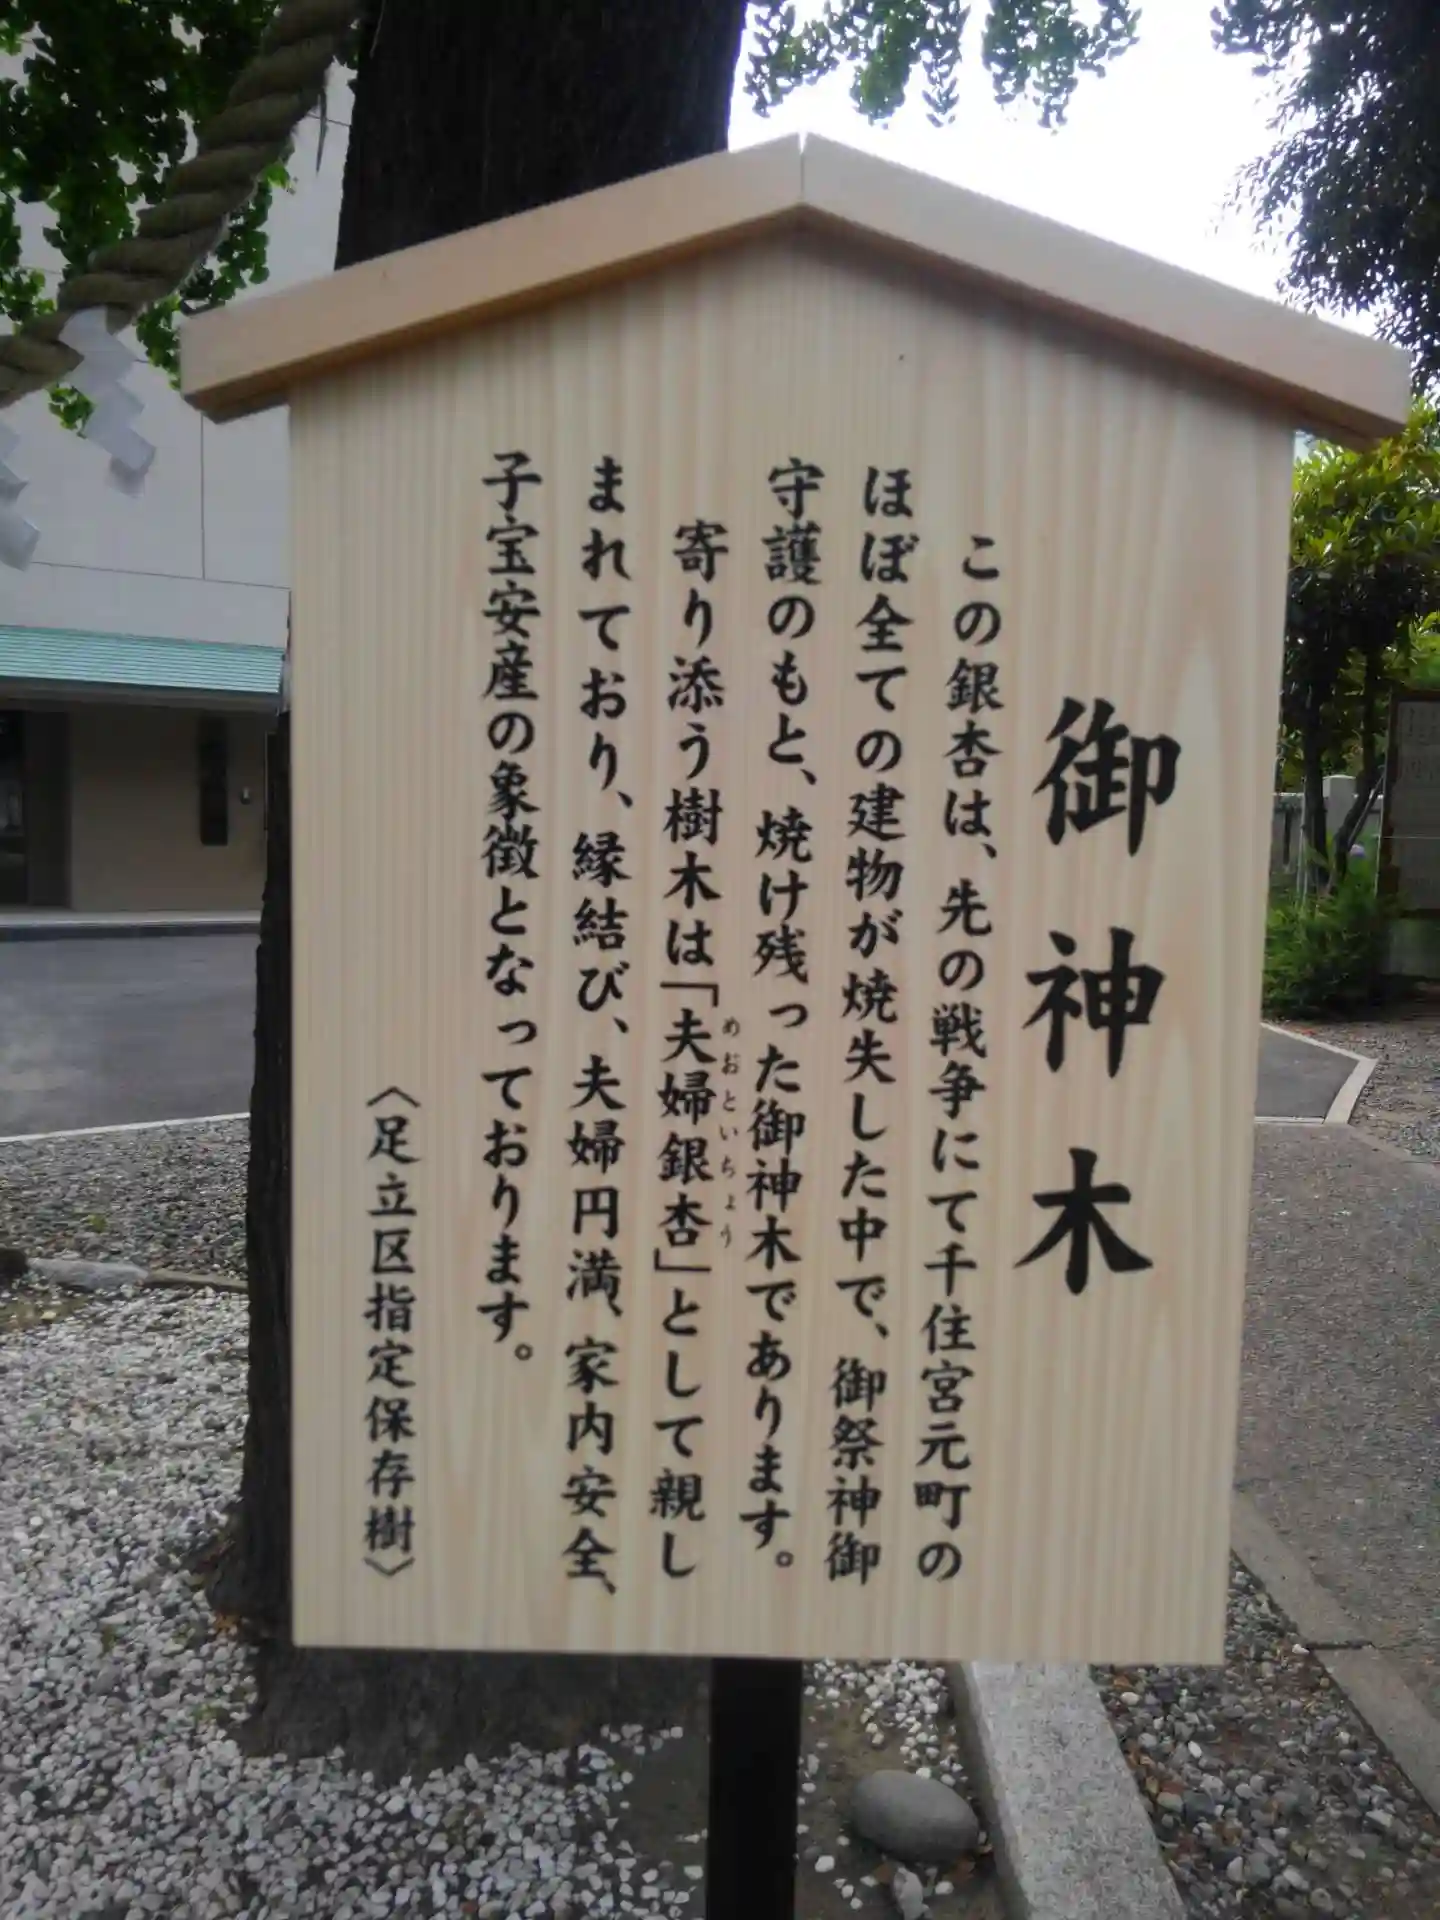 御神木
この銀杏は、先の戦争にて千住宮元町の
ほぼ全ての建物が焼失した中で、御祭神御
守護のもと、焼け残った御神木であります。
寄り添う樹木は「夫婦銀杏」として親し
めおといちょう
まれており、縁結び、夫婦円満、家内安全、
子宝安産の象徴となっております。
〈足立区指定保存樹〉